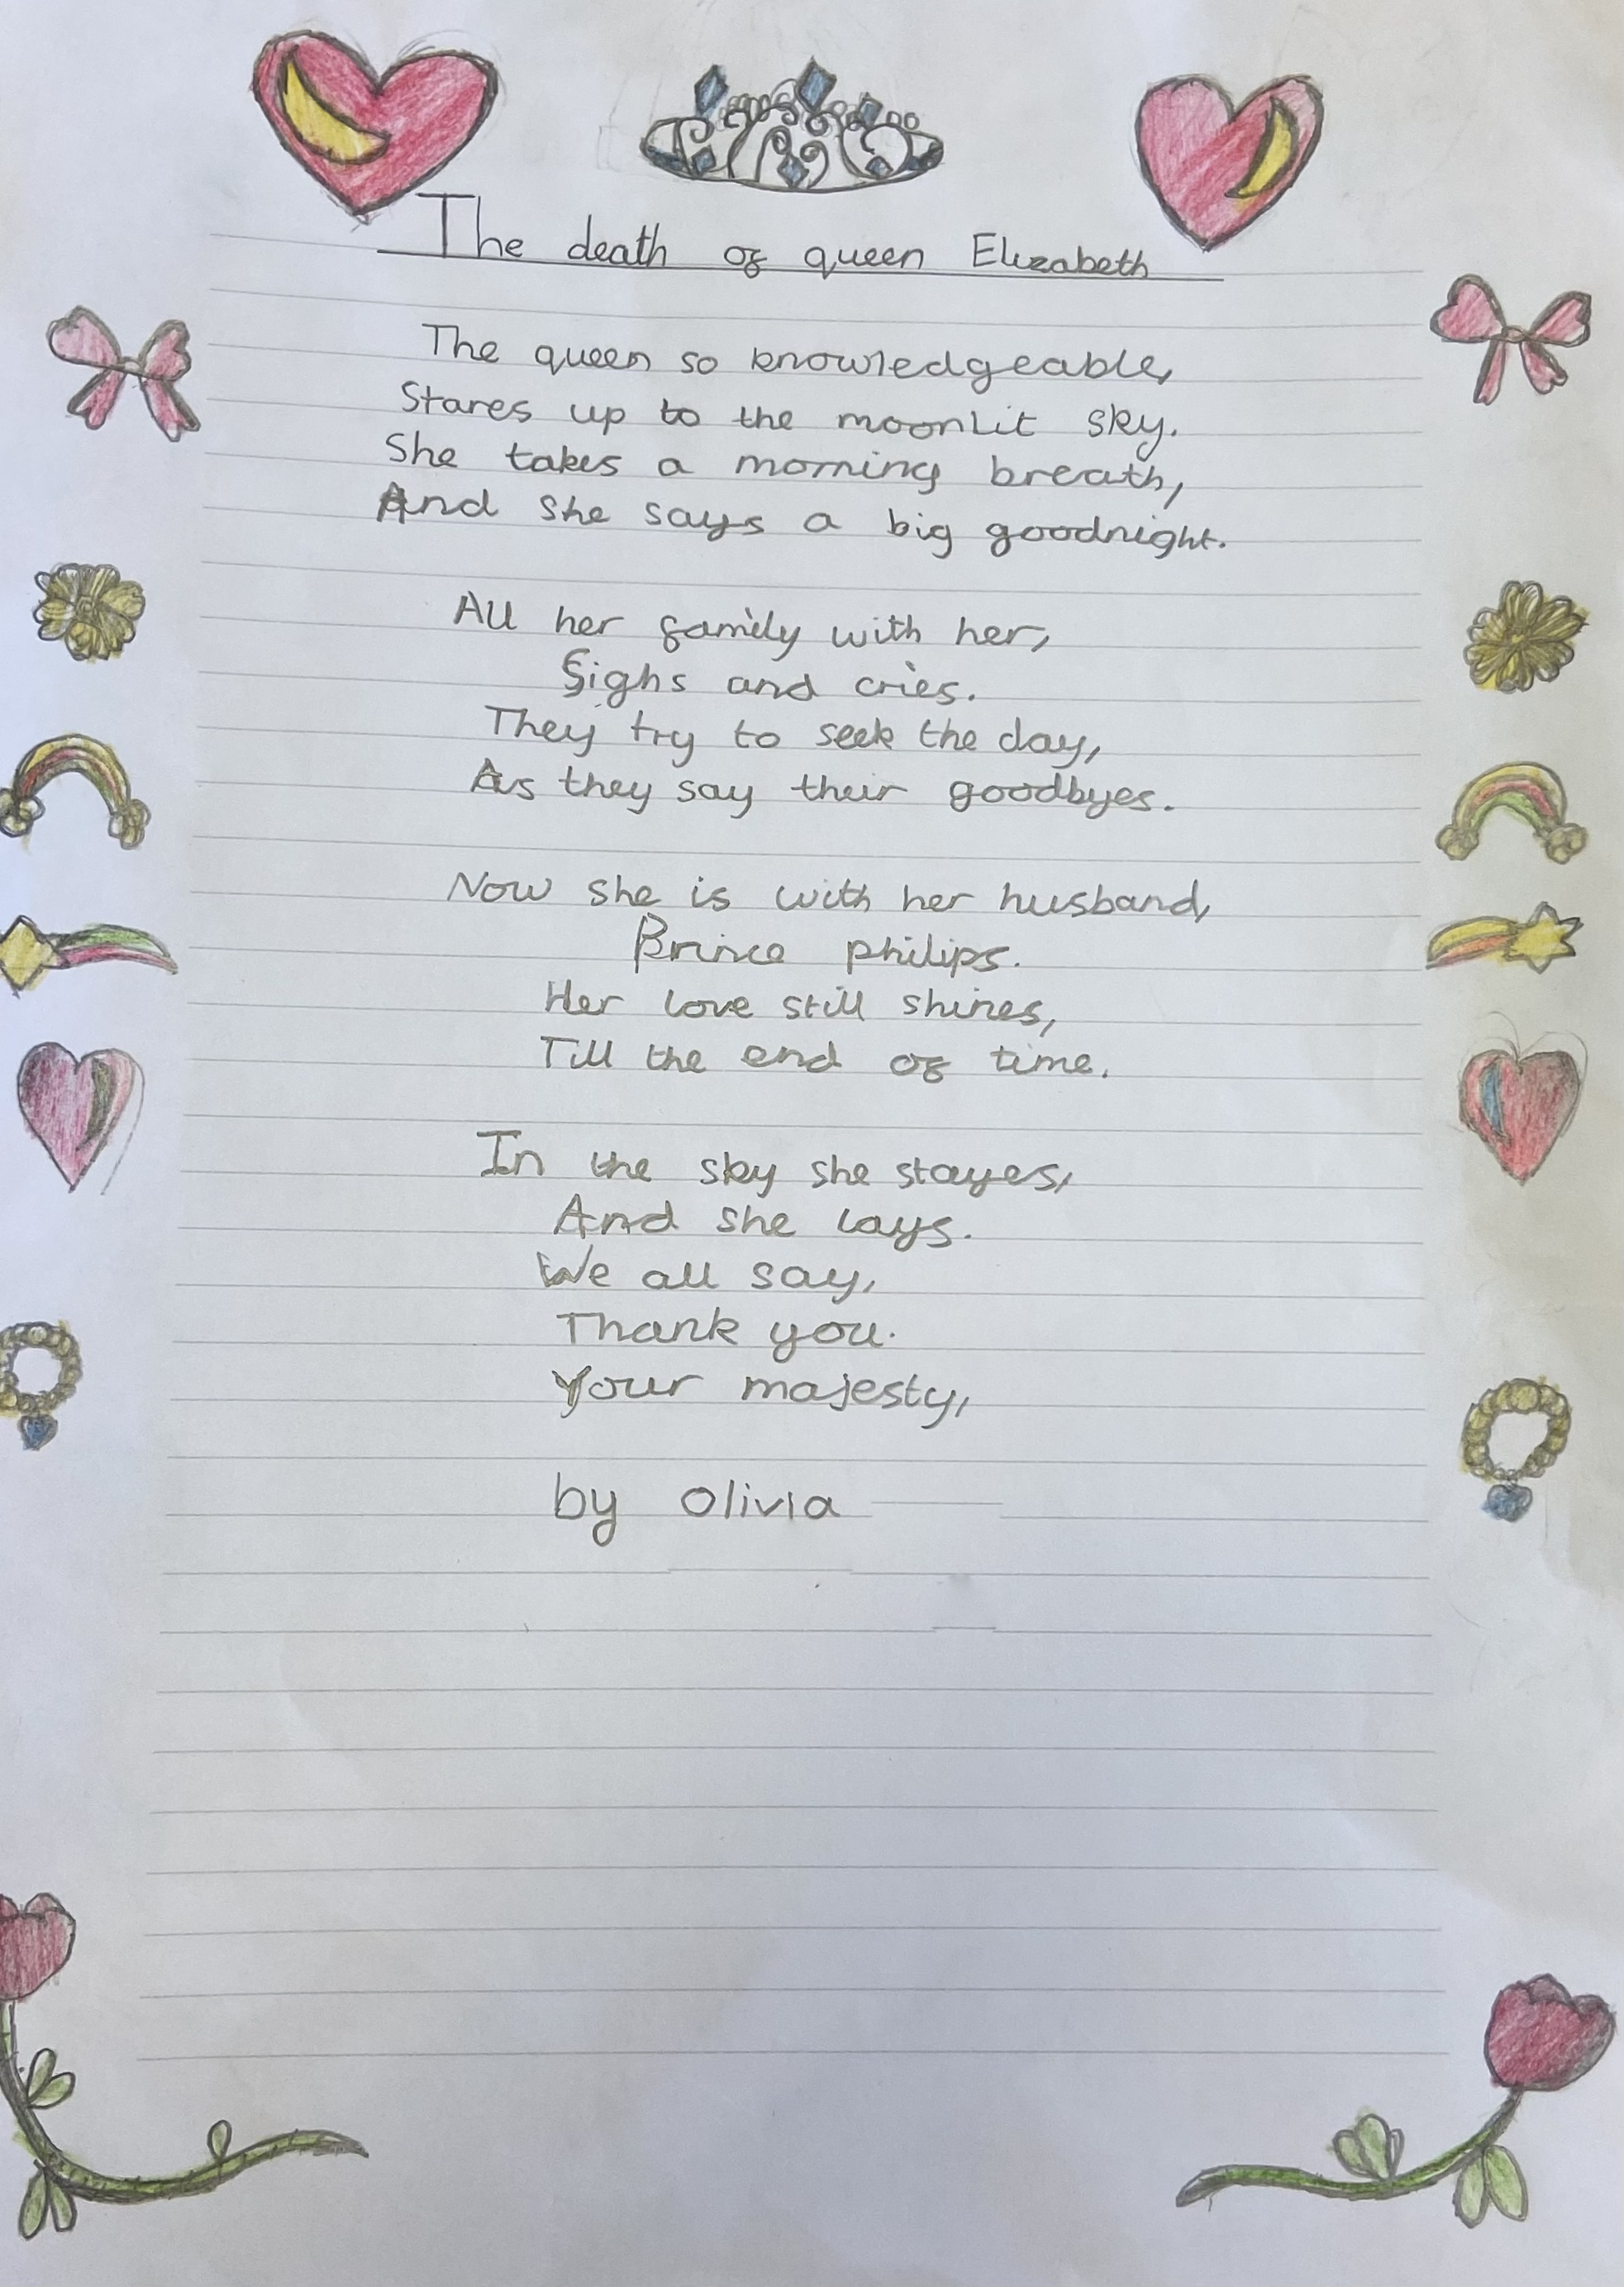 The death of queen Elizabeth
The queen so knowledgeable,
Stares up to the moonlit sky.
She takes a morning breath,
And she says a big goodnight.
All her family with her,
Sighs and cries.
They try to seek the day,
As they say their goodbyes.
Now she is with her husband,
Prince philips.
Her love still shines,
Till the end of time.
In the sky she stayes,
And she lays.
We all say,
Thank you.
Your majesty,
by Olivia